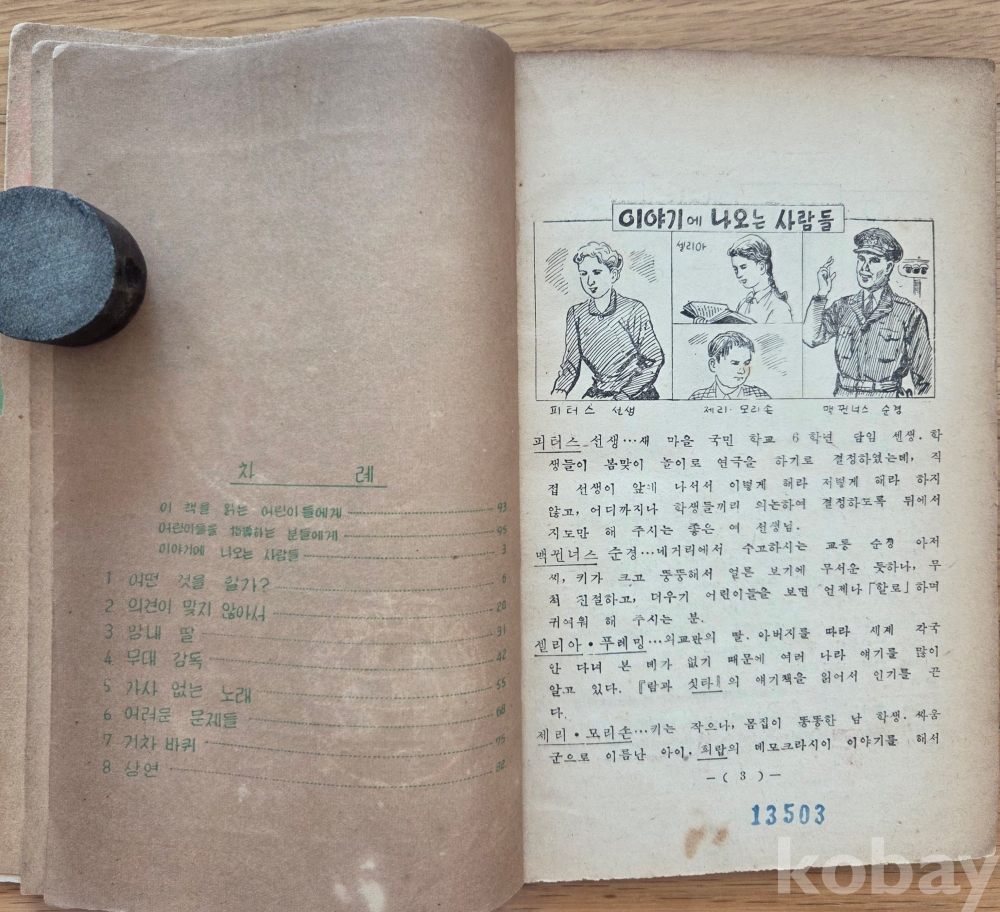 차 례
이 책을 읽는 어린이들에게 93
어린이들을 지도하는 분들에게 95
이야기에 나오는 사람들 3
1 어떤 것을 할가? 6
2 의견이 맞지 않아서 20
3 망내 딸 31
4 무대 감독 42
5 가사 없는 노래 55
6 어려운 문제들 68
7 거차 바퀴 75
8 상연
이야기에 나오는 사람들
셀리아
피터스 선생
제리·모리손
맥퀸너스 순경
피터스 선생…새 마을 국민 학교 6학년 담임 선생. 학
생들이 봄맞이 놀이로 연극을 하기로 결정하였는데, 직
접 선생이 앞에 나서서 이렇게 해라 저렇게 해라 하지
않고, 어디까지나 학생들끼리 의논하여 결정하도록 뒤에서
지도만 해 주시는 좋은 여 선생님.
맥퀸너스 순경…네거리에서 수고하시는 교통 순경 아저
씨, 키가 크고 뚱뚱해서 얼른 보기에 무서운 듯하나, 무
척 친절하고, 더우기 어린이들을 보면 언제나 「할로」하며
귀여워 해 주시는 분.
셀리아·푸레밍…외교관의 딸. 아버지를 따라 세계 각국
안 다녀 본 데가 없기 때문에 여러 나라 얘기를 많이
알고 있다. 『람과 싯타』의 얘기책을 읽어서 인기를 끈
다.
제리·모리손…키는 작으나, 몸집이 똥똥한 남 학생. 싸움
군으로 이름난 아이. 희랍의 데모크라시이 이야기를 해서
—( 3 )—
13503
kobay